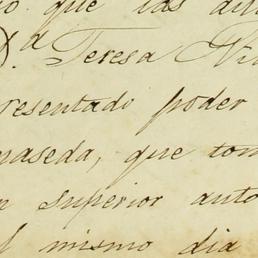 o que las
D.ª Teresa
resentado poder
maseda, que tom
superior auto
l mismo dia